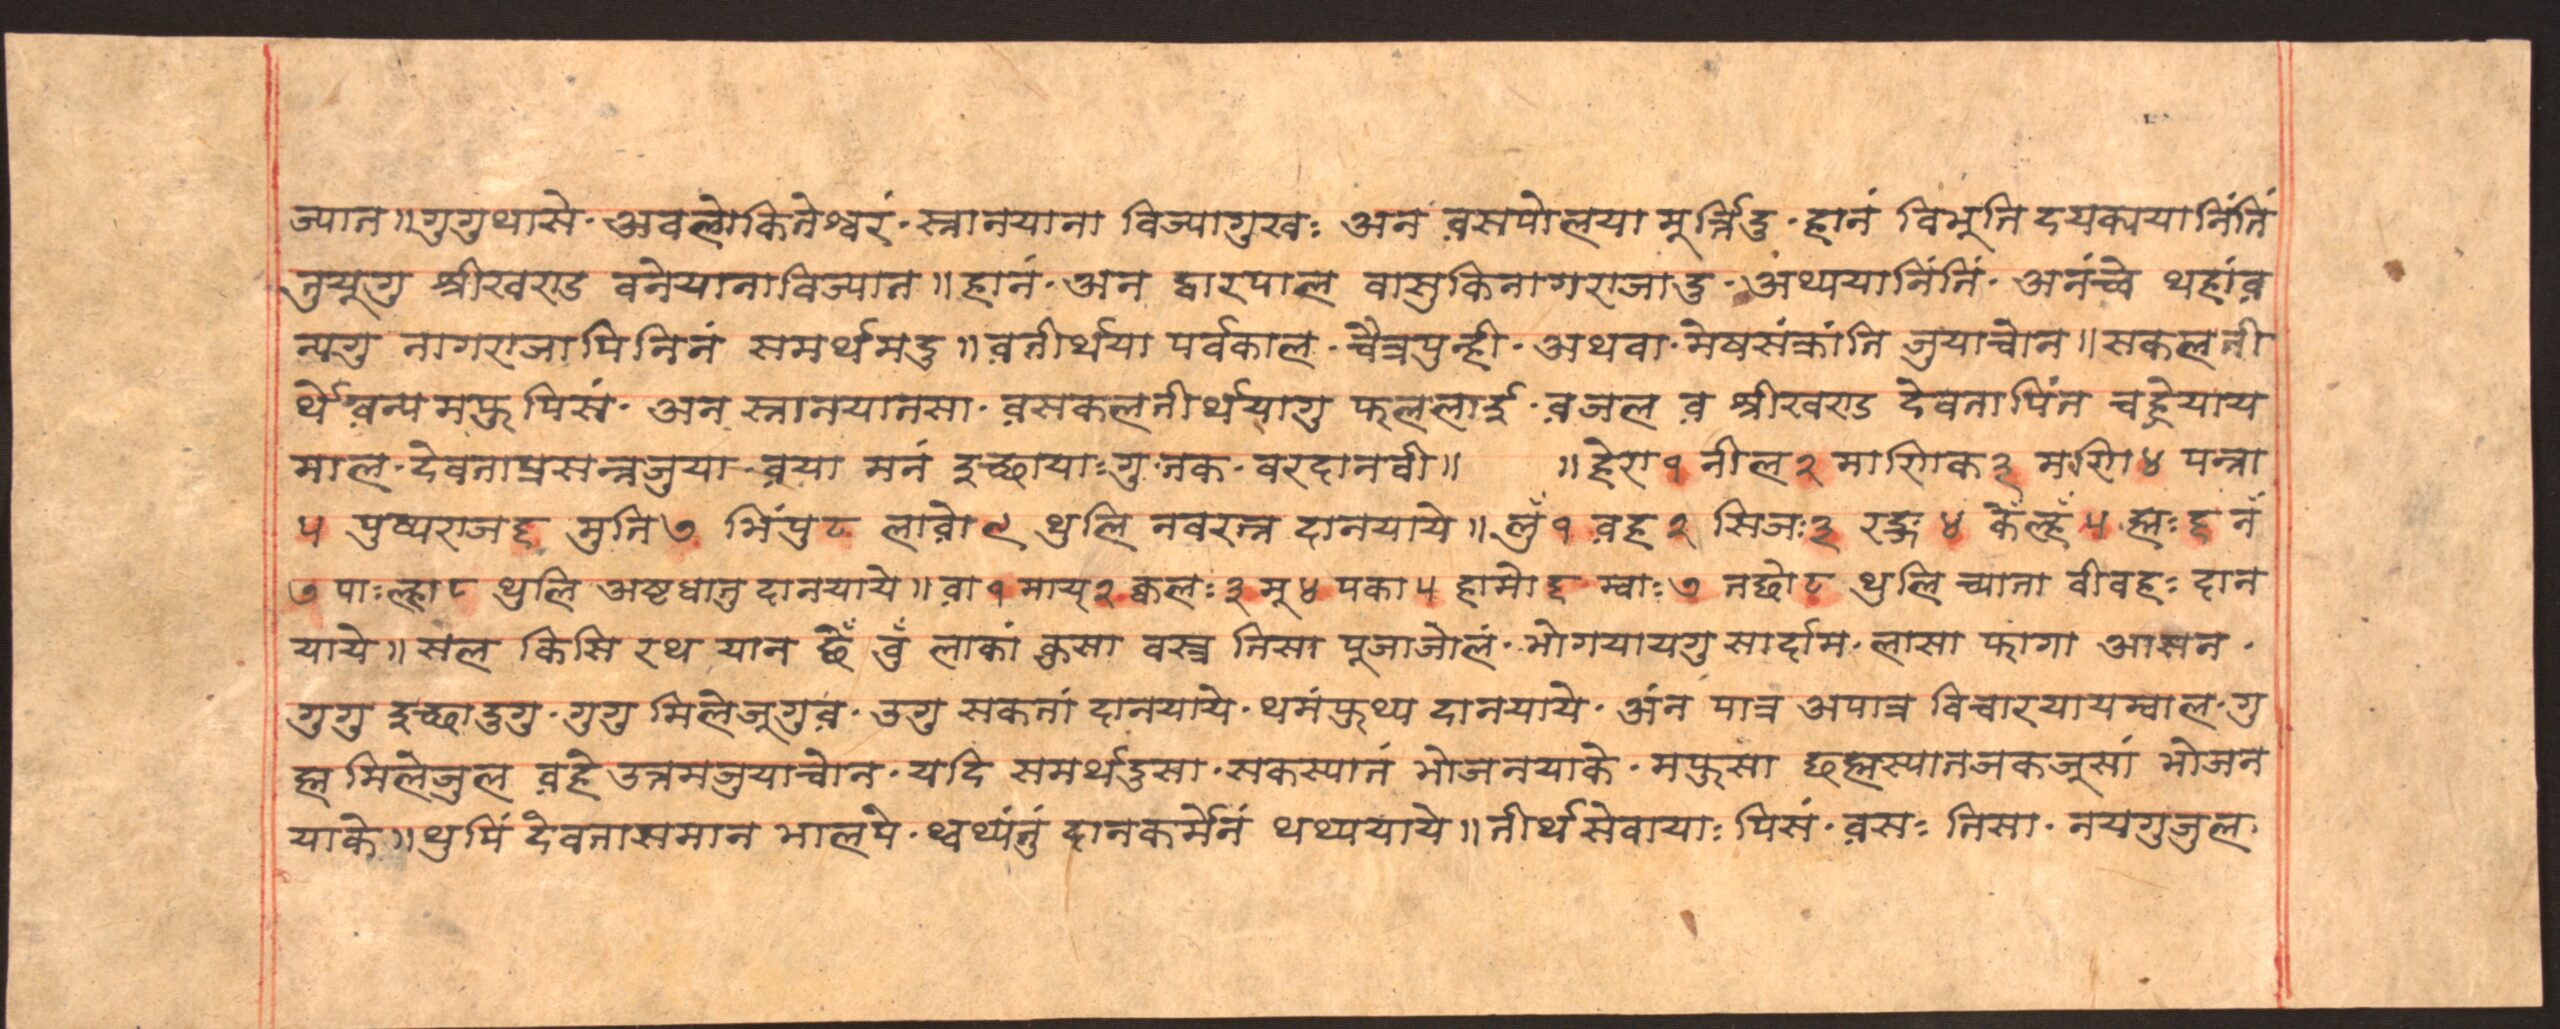 ज्यात॥गुगुथासे·अवलोकितेश्वरं·स्नानयाना विज्यागुखः अन व़सपोलया मूर्त्तिदु·हानं विभूति दयकेयानिंतिं
तुयूगु श्रीखण्ड वनेयानाविज्यात॥हानं·अन द्वारपाल वासुकिनागराजादु·अथ्ययानिंतिं·अनंच्वे थहांव़
न्यगु नागराजापिनिनं समर्थमदु॥व़तीर्थया पर्वकाल·चैत्रपुन्ही·अथवा·मेषसंक्रांति जुयाच्वोन॥सकलती
र्थे व़न्यमफुपिसं·अन स्नानयातसा·व़सकलतीर्थयागु फललाई·व़जल व़ श्रीखण्ड देवतापिंत चह्रेयाय
माल·देवताप्रसन्नजुया·व़या मनं इच्छायाःगु·तक·वरदानवी॥ ॥हेरा१ नील२ माणिक३ मणि४ पन्ना
५ पुष्पराज६ मुति७ भिंपु८ लाव़ो९ थुलि नवरत्न दानयाये॥लुँ१ व़ह२ सिजः३ रङ्ग४ कँल्हँ५ ह्लः६ नँ
७ पाःल्हा८ थुलि अष्टधातु दानयाये॥व़ा१ माय्२ क्वलः३ मू४ पका५ हामो६ म्वाः७ तछो८ थुलि च्याता वीवहः दान
याये॥सल किसि रथ यान छेँ वुँ लाकां कुसा वस्त्र तिसा पूजाजोलं·भोगयायगु सार्दाम·लासा फागा आसन·
गुगु इच्छादुगु·गुगु मिलेजूगुव़·उगु सकतां दानयाये·थमंफुथ्य दानयाये·अंन पात्र अपात्र विचारयायम्वाल·गु
ह्म मिलेजुल व़हे उत्तमजुयाच्वोन·यदि समर्थदुसा·सकस्यातं भोजनयाके·मफुसा छह्मस्यातजकजूसां भोजन
याके॥थुपिं देवतासमान भालपे·थ्वथ्यंतुं दानकर्मनं थथ्ययाये॥तीर्थसेवायाः पिसं·व़सः तिसा·नयगुजुल·